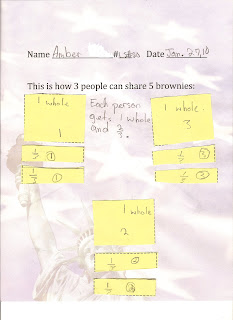 Name Amber Date Jan. 27, 10
This is how 3 people can share 5 brownies:
1 whole
1
Each person
gets 1 whole
and 2/3.
1 whole
3
1/3 1
1/3 1
1/3 3
1/3 3
1 whole
2
1/3 2
1/3 2